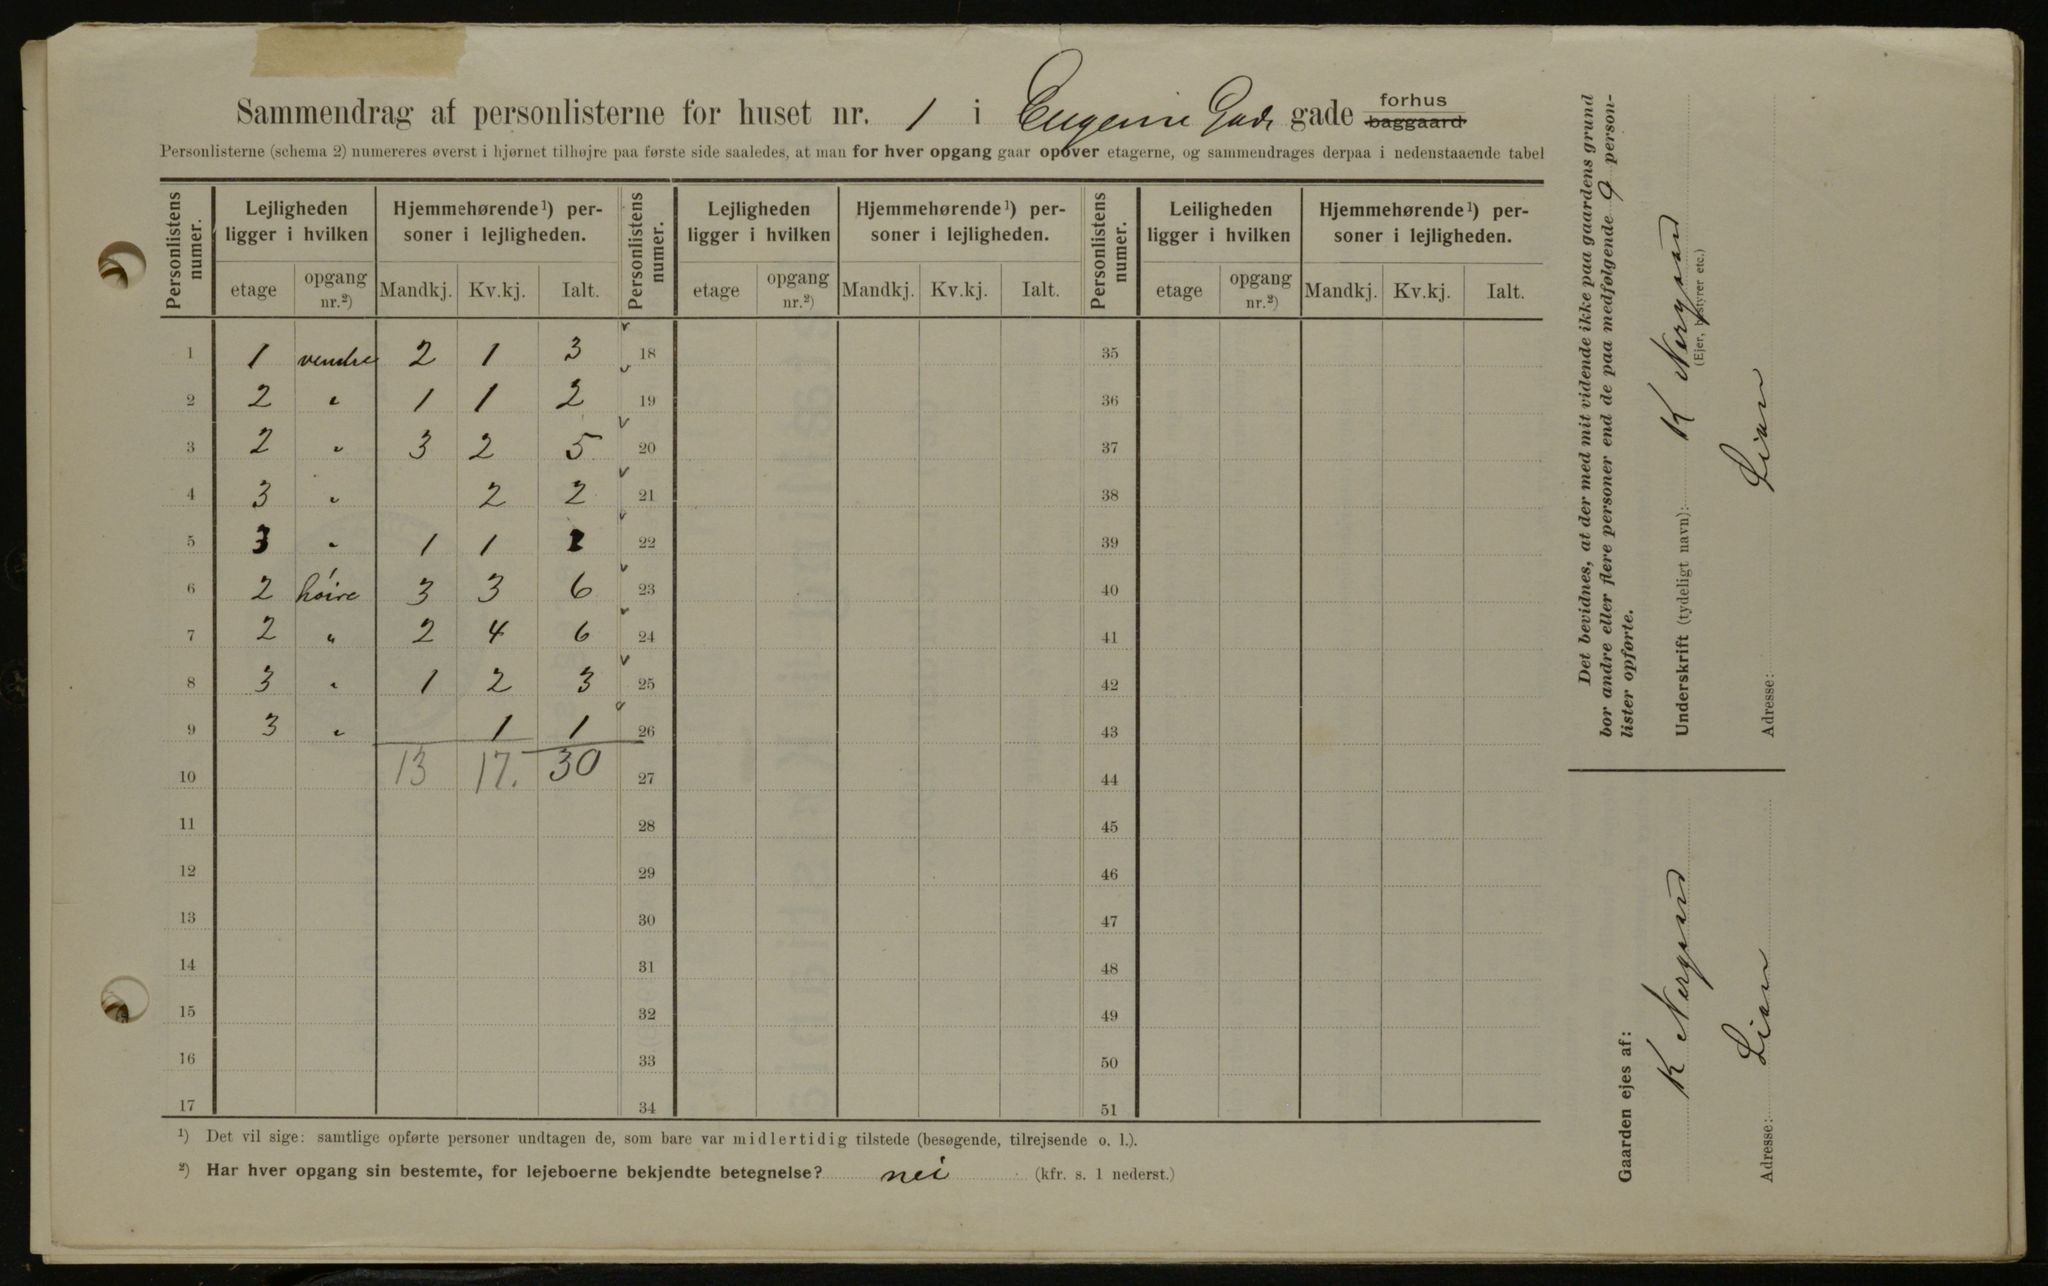 Sammendrag af personlisterne for huset nr. 1 i Eugenie Gade gade forhus baggaard
Personlisterne (schema 2) numereres øverst i hjørnet tilhøjre paa første side saaledes, at man for hver opgang gaar opover etagerne, og sammendrages derpaa i nedenstaaende tabel
Personlistens numer. Lejligheden ligger i hvilken Hjemmehørende¹) personer i lejligheden. Personlistens numer. Lejligheden ligger i hvilken Hjemmehørende¹) personer i lejligheden. Personlistens numer. Leiligheden ligger i hvilken Hjemmehørende¹) personer i lejligheden.
etage opgang nr.²) Mandkj. Kv.kj. Ialt. etage opgang nr.²) Mandkj. Kv.kj. Ialt. etage opgang nr.²) Mandkj. Kv.kj. Ialt.
1 1 vendre 2 1 3 v 18 35
2 2 " 1 1 2 v 19 36
3 2 " 3 2 5 v 20 37
4 3 " 2 2 v 21 38
5 3 " 1 1 2 v 22 39
6 2 høire 3 3 6 v 23 40
7 2 " 2 4 6 v 24 41
8 3 " 1 2 3 v 25 42
9 3 " 1 1 v 26 43
10 13 17. 30 27 44
11 28 45
12 29 46
13 30 47
14 31 48
15 32 49
16 33 50
17 34 51
¹) Det vil sige: samtlige opførte personer undtagen de, som bare var midlertidig tilstede (besøgende, tilrejsende o. l.).
²) Har hver opgang sin bestemte, for lejeboerne bekjendte betegnelse? nei (kfr. s. 1 nederst.)
Det bevidnes, at der med mit vidende ikke paa gaardens grund
bor andre eller flere personer end de paa medfølgende 9 person-
lister opførte.
Underskrift (tydeligt navn): K Nergaard
(Ejer, bestyrer etc.)
Adresse: Lian
Gaarden ejes af:
K Nergaard
Adresse: Lian